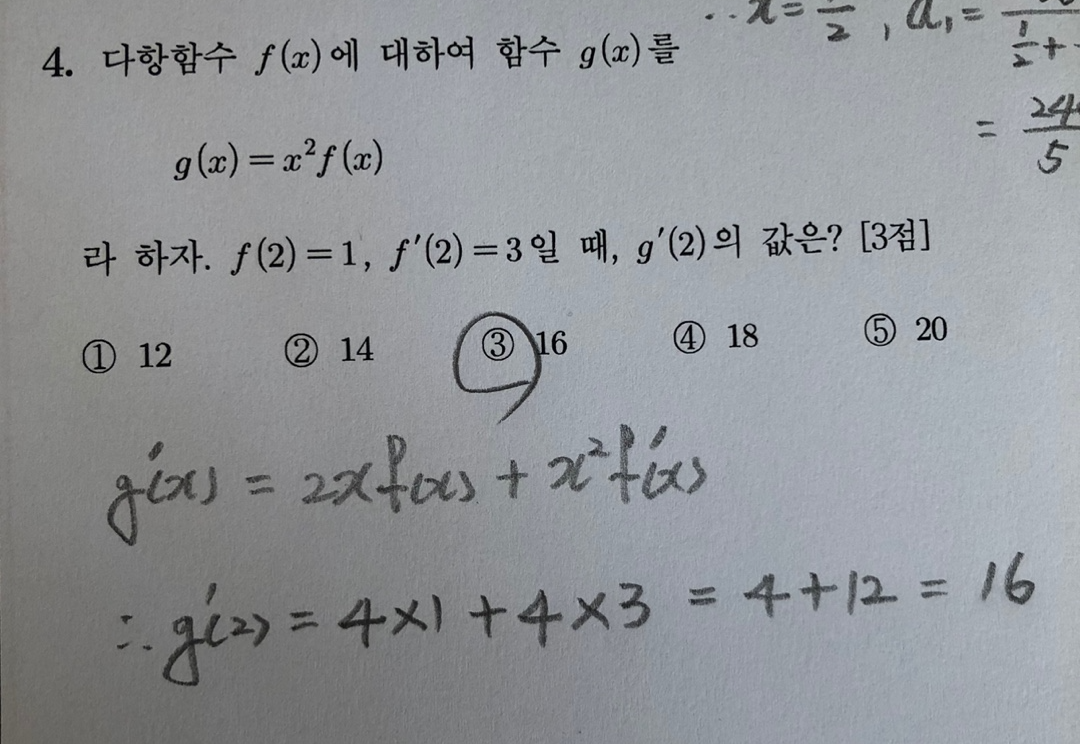 ∴ x = /2 , a₁ =
1/2 +
= 24/5
4. 다항함수 f(x)에 대하여 함수 g(x)를
g(x) = x²f(x)
라 하자. f(2) = 1, f′(2) = 3일 때, g′(2)의 값은? [3점]
① 12 ② 14 ③ 16 ④ 18 ⑤ 20
g′(x) = 2xf(x) + x²f′(x)
∴ g′(2) = 4×1 + 4×3 = 4+12 = 16